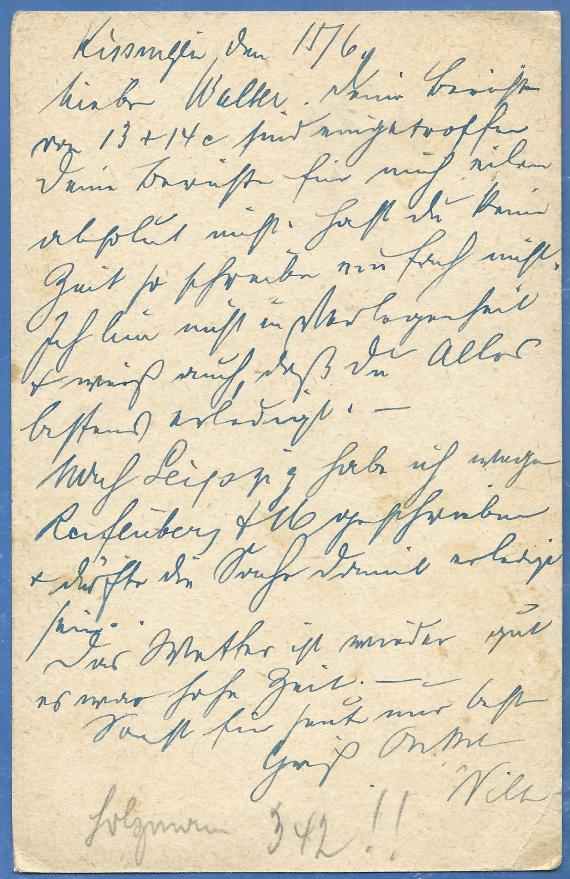 Kissingen, den 15/6.
Lieber Walter. Deine Berichte
von 13 + 14 c sind eingetroffen
Deine Berichte für mich eilen
absolut nicht. Hast du keine
Zeit so schreibe einfach nicht.
Ich bin nicht in Verlegenheit
+ weiß auch, daß du Alles
bestens erledigst. —
Nach Leipzig habe ich wegen
& M geschrieben
+ dürfte die Sache damit erledigt
sein.
Das Wetter ist wieder gut
es war hohe Zeit. —
Sonst für heut nur best
Gruß Onkel
Holzmann 342!!